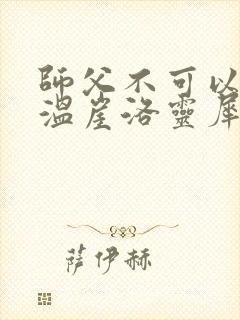 師父不可以
溫崖洛靈犀
萨伊赫